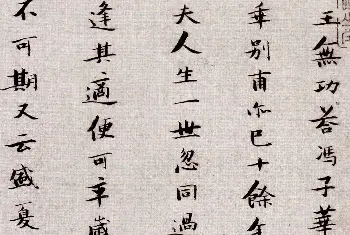 王無功荅馮子華
乖別甫尓已十餘年
夫人生一世忽同過
逢其適便可卒歲
不可期又云盛夏